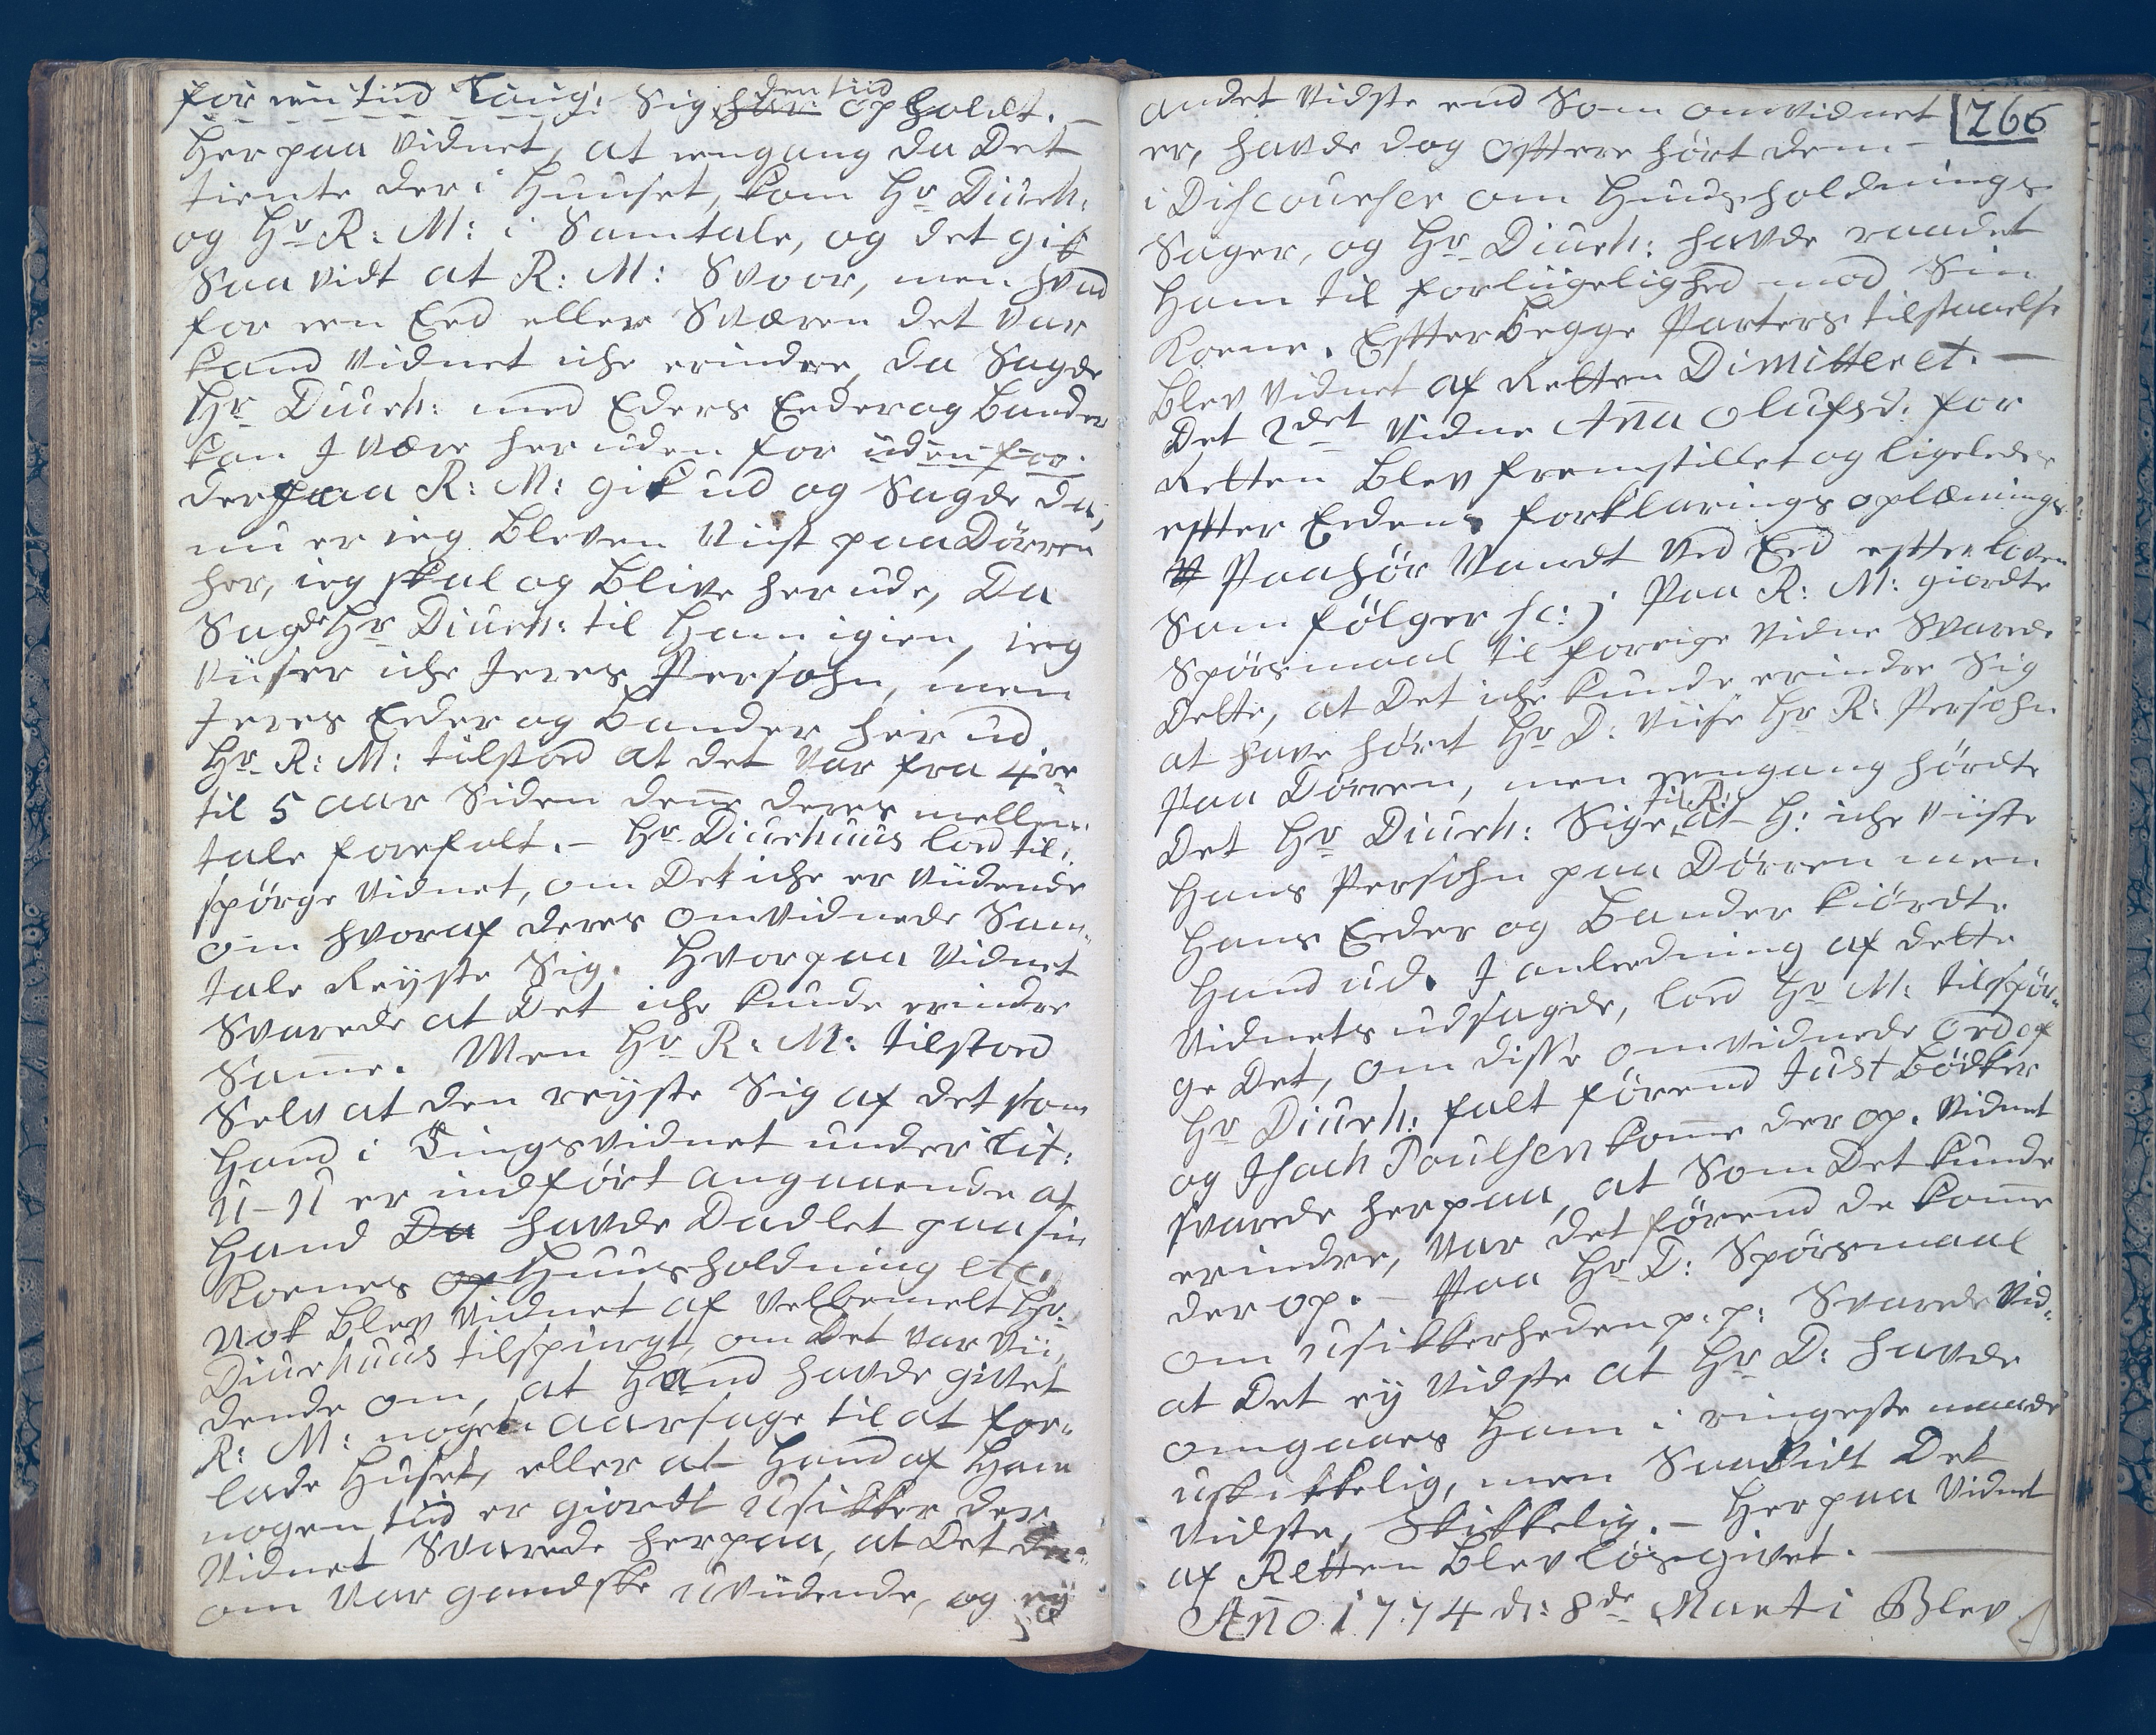 for een tiid Lang. Sig har den tiid opholdt. —
Herpaa Vidnet, at eengang da Det
tiente der i Huuset, kom Hr Diurh:
og Hr R: M: i Samtale, og det gik
Saa vidt at R: M: Svoor, men hvad
for een Eed eller Sværen det var
kand Vidnet iche erindre, da Sagde
Hr Diurh: med Eders Eeder og Bander
kan J være her uden for uden for.
derpaa R: M: gik ud og Sagde da,
nu er ieg bleven Viist paa Dörren
her, ieg skal og blive her ude, Da
Sagde Hr Diurh: til Ham igien, ieg
Viiser iche Jeres Persohn, men
Jeres Eeder og Bander her ud.
Hr R: M: tilstoed at det Var fra 4re
til 5 aar Siden denne deres mellem-
tale forefalt. – Hr Diurhuus loed til-
spörge Vidnet, om Det iche er Viidende
om hvoraf deres omvidnede Sam-
tale Reyste Sig. Hvorpaa Vidnet
Svarede at Det iche kunde erindre
Samme. Men Hr R: M: tilstoed
Selv at den reyste Sig af det som
Hand i Tingsvidnet under Lit:
N-N er indført angaaende at
Hand Da havde Dadlet paa sin
Koenes op Huusholdning etc.
Nok blev Vidnet af Velbemelt Hr
Diurhuus tilspurgt, om Det Var Vii-
dende om, at Hand havde givet
R: M: nogen aarsage til at for-
lade Huset, eller at Hand af Ham
nogen tiid er giordt usikker der
Vidnet Svarede herpaa, at Det der-
om Var gandske uviidende, og ey
andet Vidste end Som omvidnet
266
er, havde dog offtere hört dem
i Discourser om Huusholdnings
Sager, og Hr Diurh: havde raadet
Ham til forliigelighed mod Sin
Koene. Effter begge Parters tilstaaelse
blev Vidnet af Retten Dimitteret. —
Det 2det Vidne Anna Olufsd. for
Retten blev fremstillet og ligeledes
effter Eedens forklarings oplæsnings
V Paahör Vandt Ved Eed effter loven
Som fölger sc: j Paa R: M: giordte
Spörsmaal til forrige Vidne Svarede
Dette, at Det iche kunde erindre Sig
at have hört Hr D: Viise Hr R: Persohn
Paa Dörren, men eengang hördte
Det Hr Diurh: Sige til R: at H: iche Viiste
Hans Persohn paa Dörren men
Hans Eeder og Bander kiördte
Hand ud. J anleedning af dette
Vidnets udsagde, loed Hr M: tilspör-
ge Det, om disse omvidnede ord af
Hr Diurh: falt förend Just Bödker
og Jsach Poulsen komme der op. Vidnet
svarede herpaa, at Som Det kunde
erindre, Var det förend de komme
der op. – Paa Hr D: Spörsmaal
om usikkerheden p. p: Svarede Vid-
at Det ey Vidste at Hr D: havde
omgaaes Ham i ringeste maade
uskikkelig, men Saavidt Det
Vidste, Skikkelig. – Herpaa Vidnet
af Retten blev lösgivet. —
Anno 1774 d: 8de Marti Blev